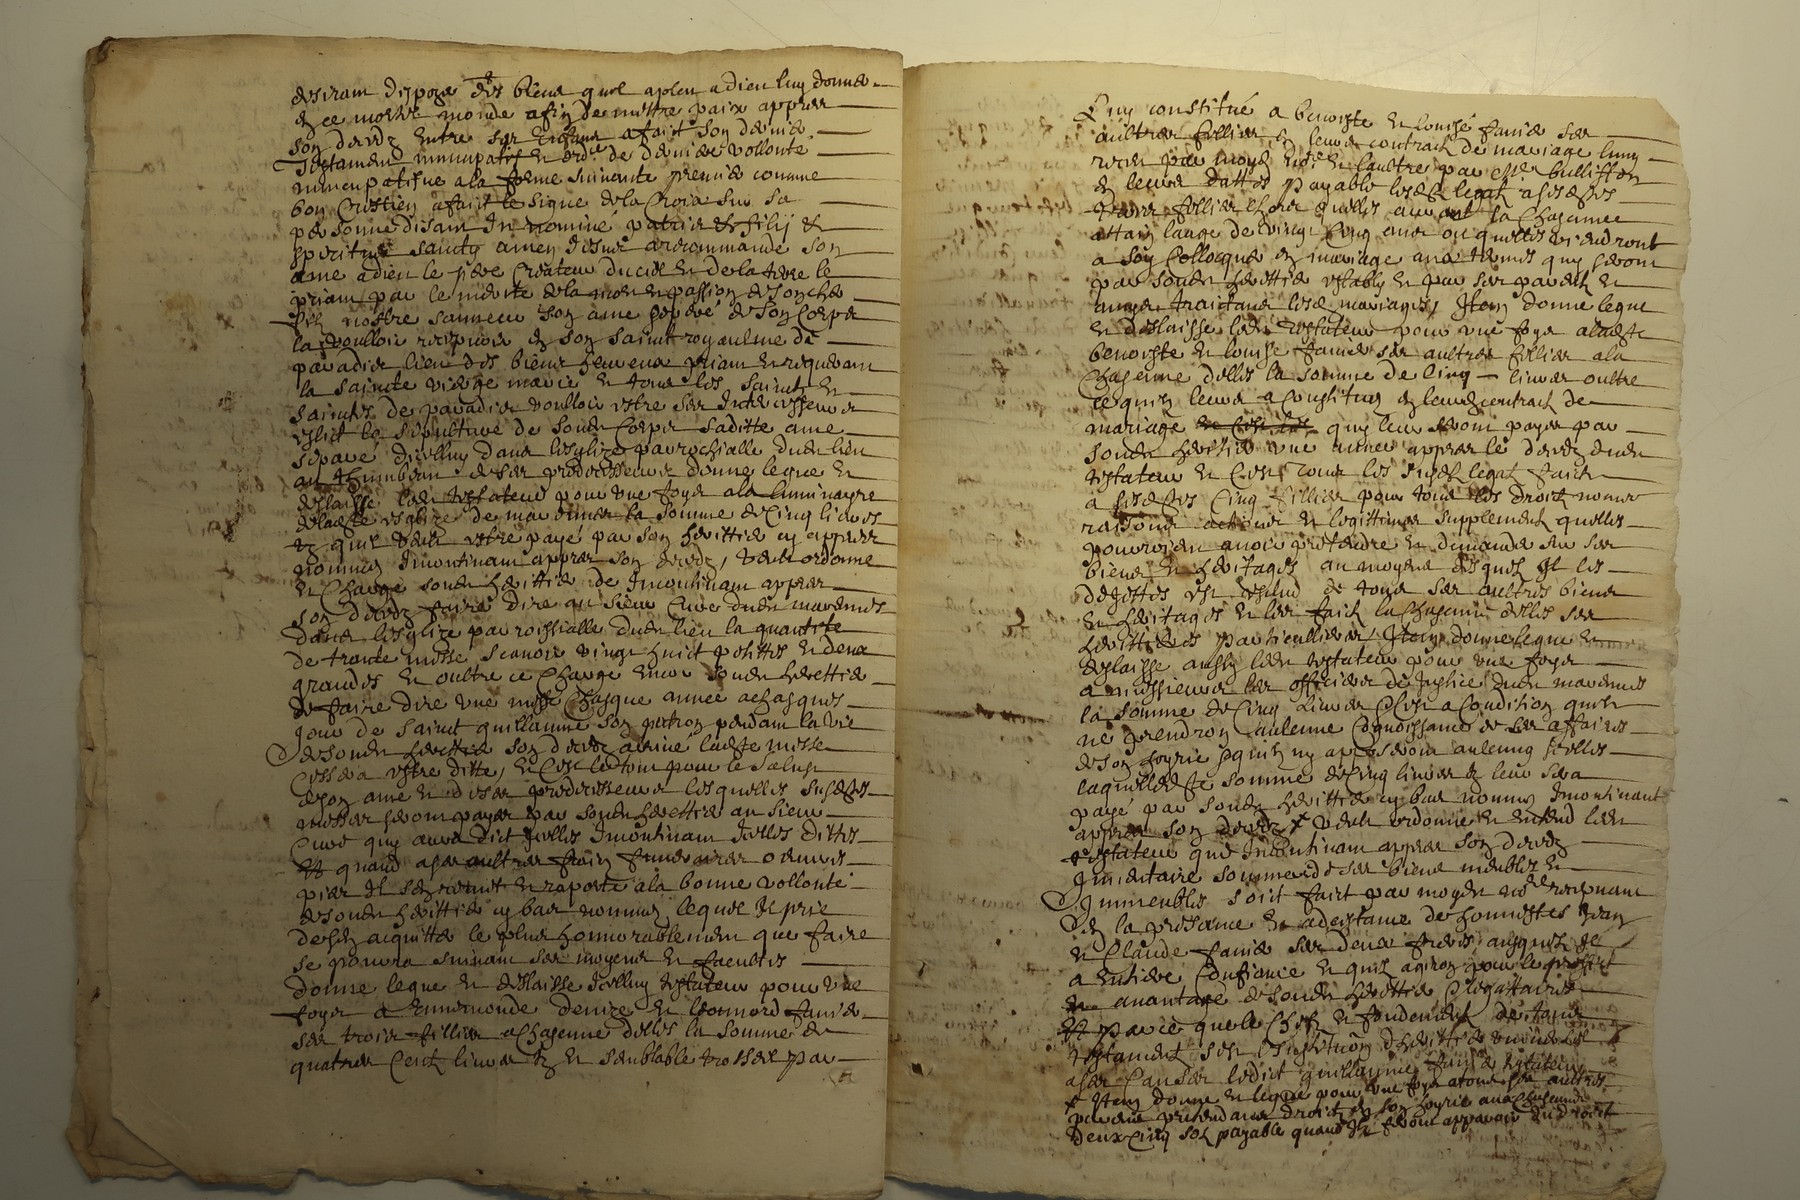 desirant dispozer des biens quil a pleu a dieu luy donner
en ce mortel monde afin de mettre paix appres
son decedz entre ses enfans a fait son dernier
Testament nuncupatif et ordre de derniere vollonté
nuncupatifve a la forme suivante premier comme
bon Crestien a fait le signe de la Croix sur sa
personne disant In nomine patris et filij et
speritus sancty amen disant a recommandé son
ame a dieu le pere Createur du ciel et de la terre le
priant par le merite de la mort et passion de son cher
filz nostre sauveur son ame separé de son corps
la voulloir recepvoir en son saint royaulme de
paradis lieu des biens heureux priant et requerant
la sainte vierge marie et tous les saints et
saintes de paradis voulloir estre ses intercesseurs
eslict la sepulture de sondit corps saditte ame
separé dicelluy dans lesglize parrochialle dudit lieu
au thumbeau de ses predecesseurs donne legue et
deslaisse ledit testateur pour une foys a la luminayre
de ladite esglize de mavennes la somme de cinq livres
tz quil veut estre payé par son heritier cy appres
nommé Incontinant appres son decedz, veult ordonne
et charge sondit heritier de Incontinant appres
son decedz faire dire au sieur Curé dudit mavennes
dans lesglize parroissialle dudit lieu la quantité
de trante messe scavoir vingt huict petittes et deux
grandes et oultre ce charge encor sondit heritier
de faire dire une messe chasque année a chasques
jour de saint guillaume son patron pendant la vie
de sondit heritier son decedz arrivé ladite messe
cessera estre ditte, et cest le tout pour le salut
de son ame et de ses predecesseurs lesquelles susdites
messes seront payer par sondit heritier au sieur
Curé quy aura dict icelles Incontinant icelles dittes
Et quand a ses aultres frais funeraires oeuvres
pies Il sen remet et raporte a la bonne vollonté
de sondit heritier cy bas nommé lequel Il prie
de sen acquitter le plus honnorablement que faire
se pourra suivant ses moyens et facultés
donne legue et deslaisse icelluy testateur pour une
foys a Ennemonde denize et leonnord
ses trois filles a chascune delles la somme de
quatre cent livres tz et semblable trossel par
Luy constitué a benoiste et louise ses
aultres filles en leurs contract de mariage luny
receu par moy notre et laultre par me bulliffon
en leurs dattes payable lesditz legat a sesdites
trois filles lhors quelles auront la chascune
attain lange de vingt cinq ans ou quelles viendront
a soy collocquer en mariage aux termes quy seront
par sondit heritier establi et par ses parents et
amys traictant lesditz mariages, Item donne legue
et deslaisse ledit testateur pour une foys a ladite
benoiste et louise ses aultres filles a la
chascune delles la somme de cinq livres oultre
ce quil leurs a constitué en leurs contract de
mariage quy leur seront payer par
sondit heritier une année appres le decedz dudit
testateur et cest pour les susditz legat faictz
a sesdites cinq filles pour tous les droictz noms
raisons actions et legittimes supplement quelles
pourroient avoir pretendre et demander sur ses
biens et heritages au moyen desquels Il les
dejettes et esclud de tous ses aultres biens
et heritages et les faict la chascune delles ses
heritieres particullieres, Item donne legue et
deslaisse aussy ledit testateur pour une foys
a messieurs les officiers de Justice dudit mavennes
la somme de cinq livres cest a condition quilz
ne prendron aulcune cognoissance de ses affaires
de son hoyrie et quilz ny apposeront aulcung scelles
laquelle dite somme de cinq livres tz leur sera
payé par sondit heritier cy bas nommé Incontinant
appres son decedz x veult ordonne et entend ledit
testateur que Incontinant appres son decedz
Inventaire sommaire de ses biens meubles et
Immeubles soict faict par moy dit notre recepvant
en la presance et adcistance de honnestes Jean
et Claude ses deux freres ausquels Il
a entiere confiance et quilz agiron pour le proffict
et avantage de sondit heritier et legattaires
Et parce que le chefz et fondement de tous
testament sest linstitution dheritier universel
a ses causes ledict guillaume testateur
x Item donne et legue pour une foys a tous ses aultres
parans pretendans droict en son hoyrie aux chascungs
deux cinq solz payable quand Ilz feront apparoir du droict